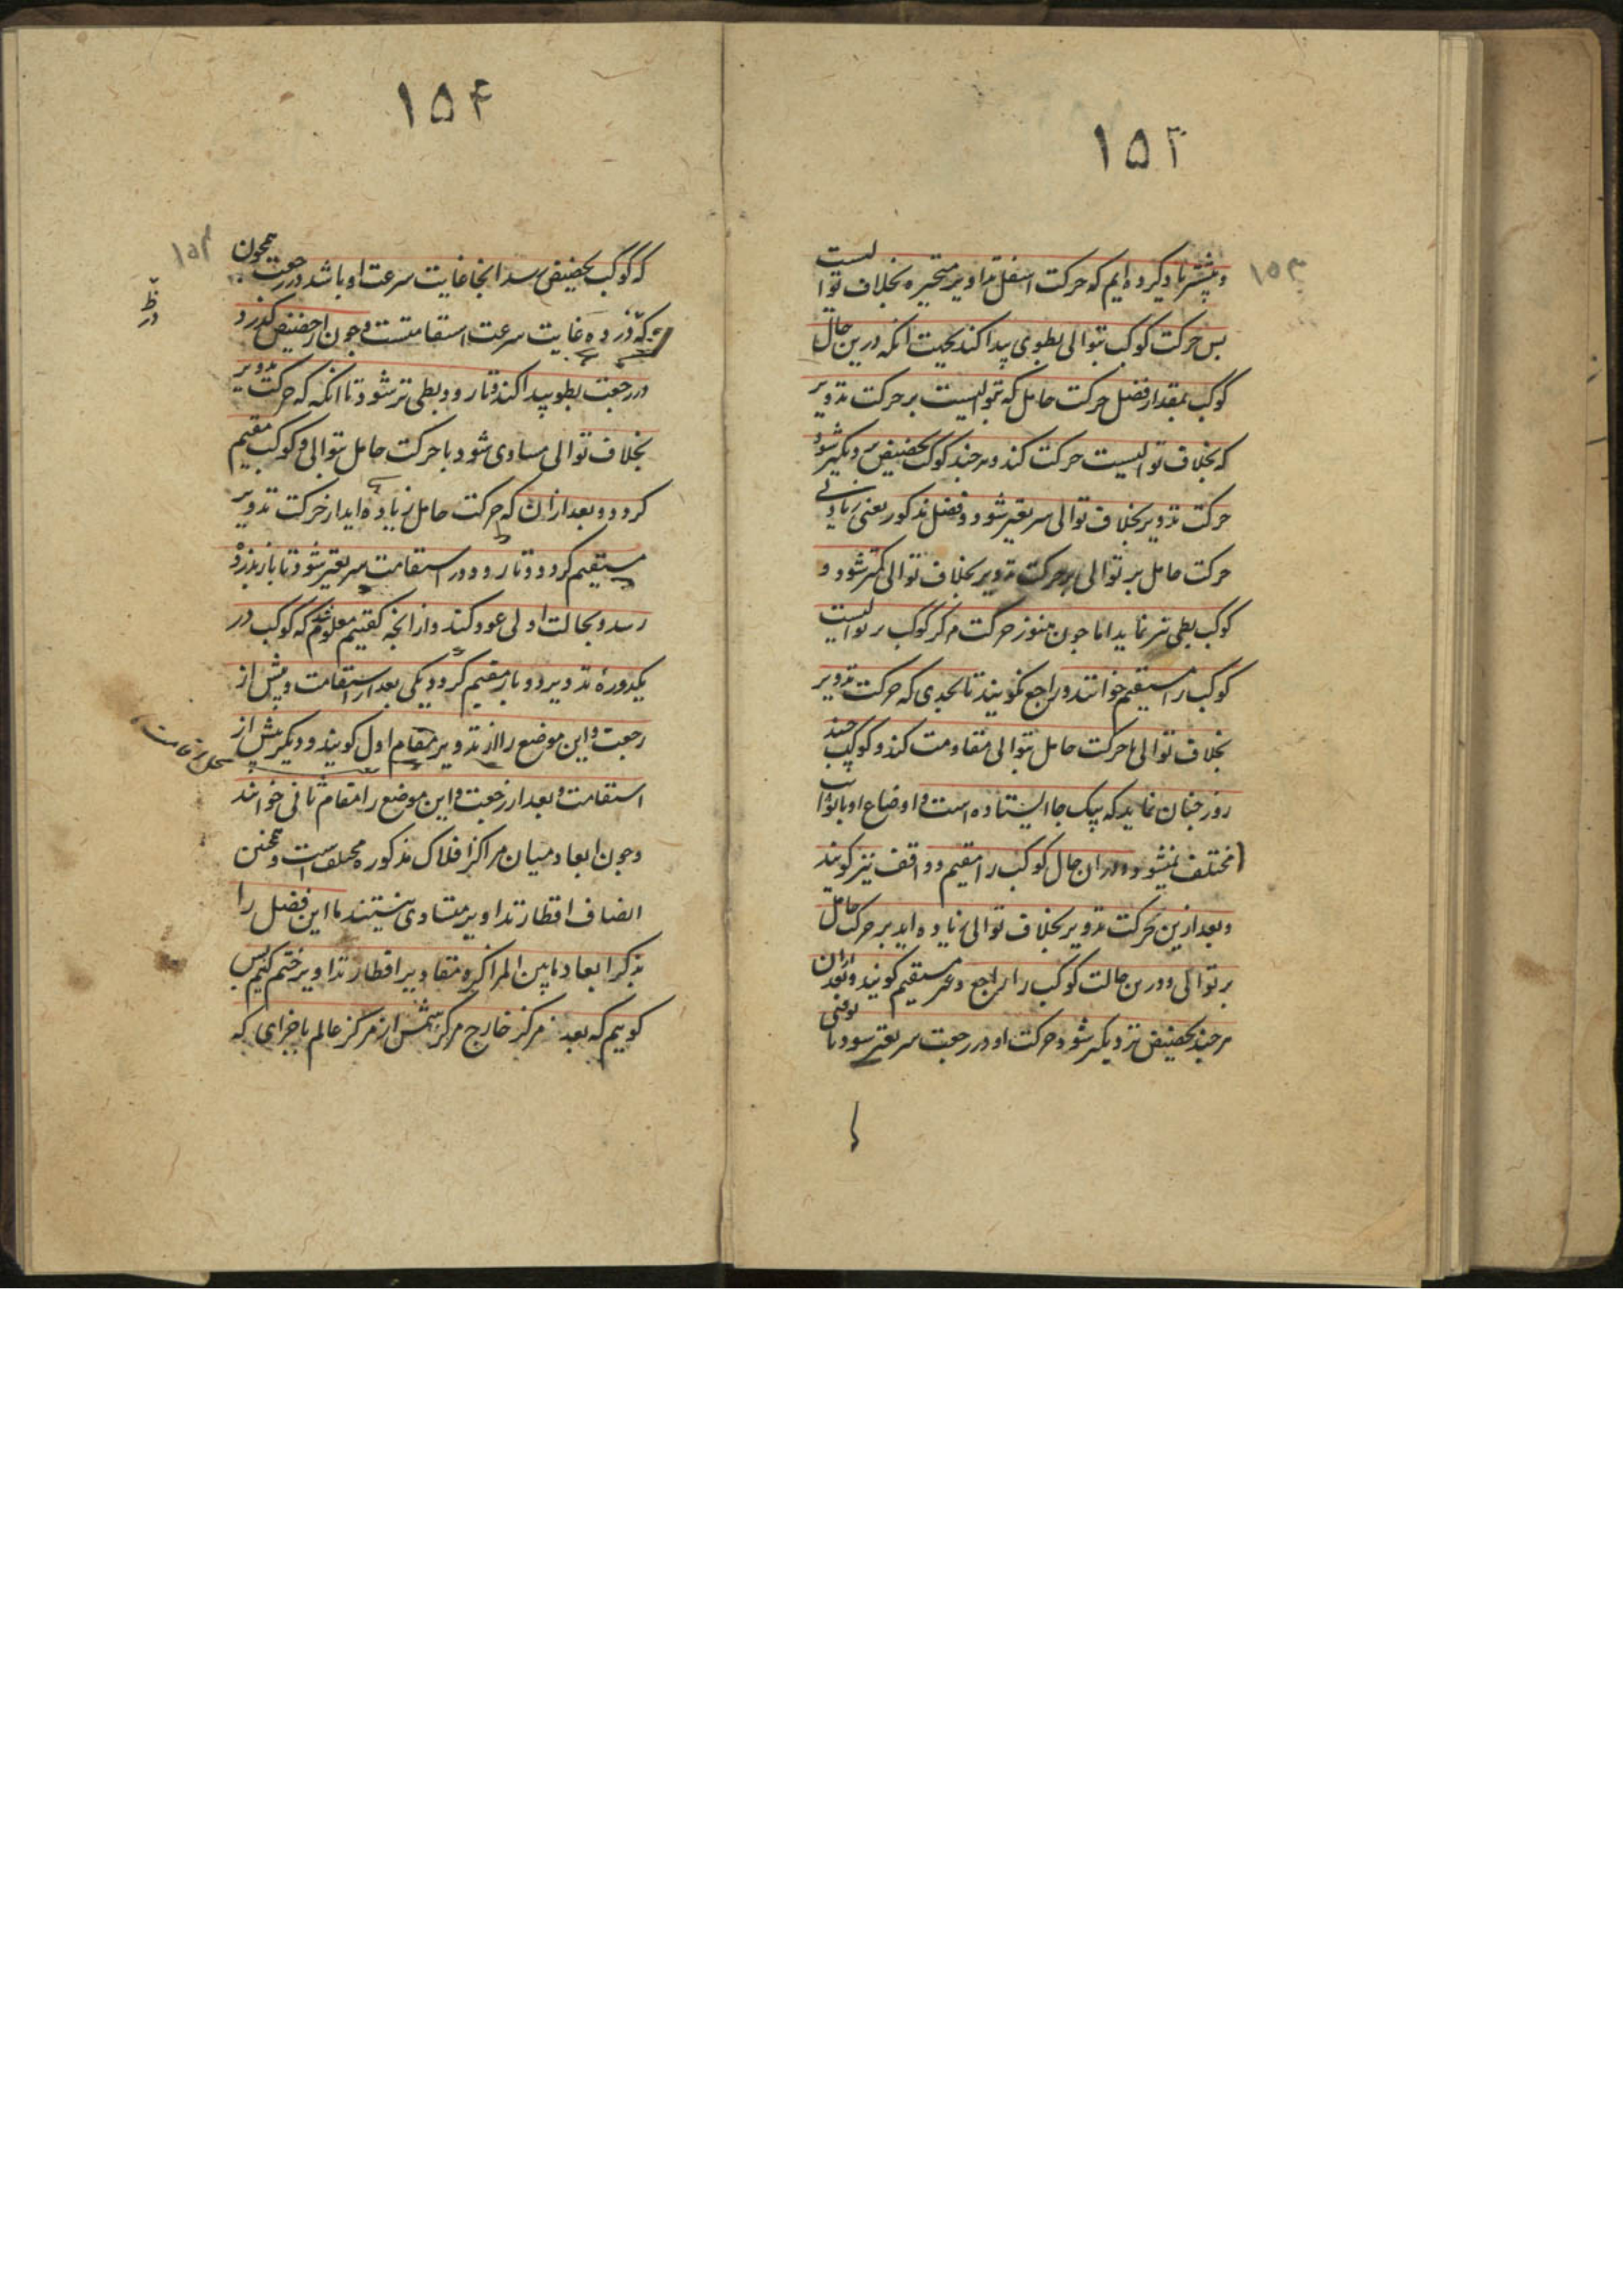 ۱۵۳
۱۵۳
و پیشتر یاد کرده ایم که حرکت اسفل تداویر متحیره بخلاف توالیست
پس حرکت کوکب بتوالی بطوی پیدا کند بحیث انکه درین حال
کوکب بمقدار فضل حرکت حامل که بتوالیست بر حرکت تدویر
که بخلاف توالیست حرکت کند و هرچند کوکب بحضیض نزدیکتر شود
حرکت تدویر بخلاف توالی سریعتر شود و فضل مذکور یعنی زیادتی
حرکت حامل بر توالی بر حرکت تدویر بخلاف توالی کمتر شود و
کوکب بطی تر نماید اما چون هنوز حرکت مرکز کوکب بر توالیست
کوکب را مستقیم خوانند و راجع نکویند تا بحدی که حرکت تدویر
بخلاف توالی با حرکت حامل بتوالی مقاومت کند و کوکب چند
روز چنان نماید که بیک جا ایستاده است و اوضاع او با ثوابت
مختلف نمیشود و در ان حال کوکب را مقیم و واقف نیز کویند
و بعد ازین حرکت تدویر بخلاف توالی زیاده اید بر حرکت حامل
بر توالی و درین حالت کوکب را راجع و غیر مستقیم کویند و بعد ازان
هرچند بحضیض نزدیکتر شود حرکت او در رجعت سریعتر شود تا وقتی
۱۵۴
۱۵۴
که کوکب بحضیض رسد انجا غایت سرعت او باشد در رجعت همچون
که ذروه غایت سرعت استقامتست و چون از حضیض کذرد
در رجعت بطو پیدا کند و تا رود بطی تر شود تا انکه که حرکت تدویر
بخلاف توالی مساوی شود با حرکت حامل بتوالی و کوکب مقیم
کردد و بعد ازان که حرکت حامل زیاده اید از حرکت تدویر
مستقیم کردد و تا رود در استقامت سریعتر شود تا باز بذروه
رسد و بحالت اولی عود کند و از انچه کفتیم معلوم شد که کوکب در
یکدوره تدویر دو بار مقیم کردد یکی بعد از استقامت و پیش از
رجعت و این موضع را از تدویر مقام اول کویند و دیکر پیش از
استقامت و بعد از رجعت و این موضع را مقام ثانی خوانند
و چون ابعاد میان مراکز افلاک مذکوره مختلفست و همچنین
انصاف اقطار تداویر متساوی نیستند ما این فصل را
بذکر ابعاد مابین المراکز و مقادیر اقطار تداویر ختم کنیم پس
کوییم که بعد مرکز خارج مرکز شمس از مرکز عالم باجزای که